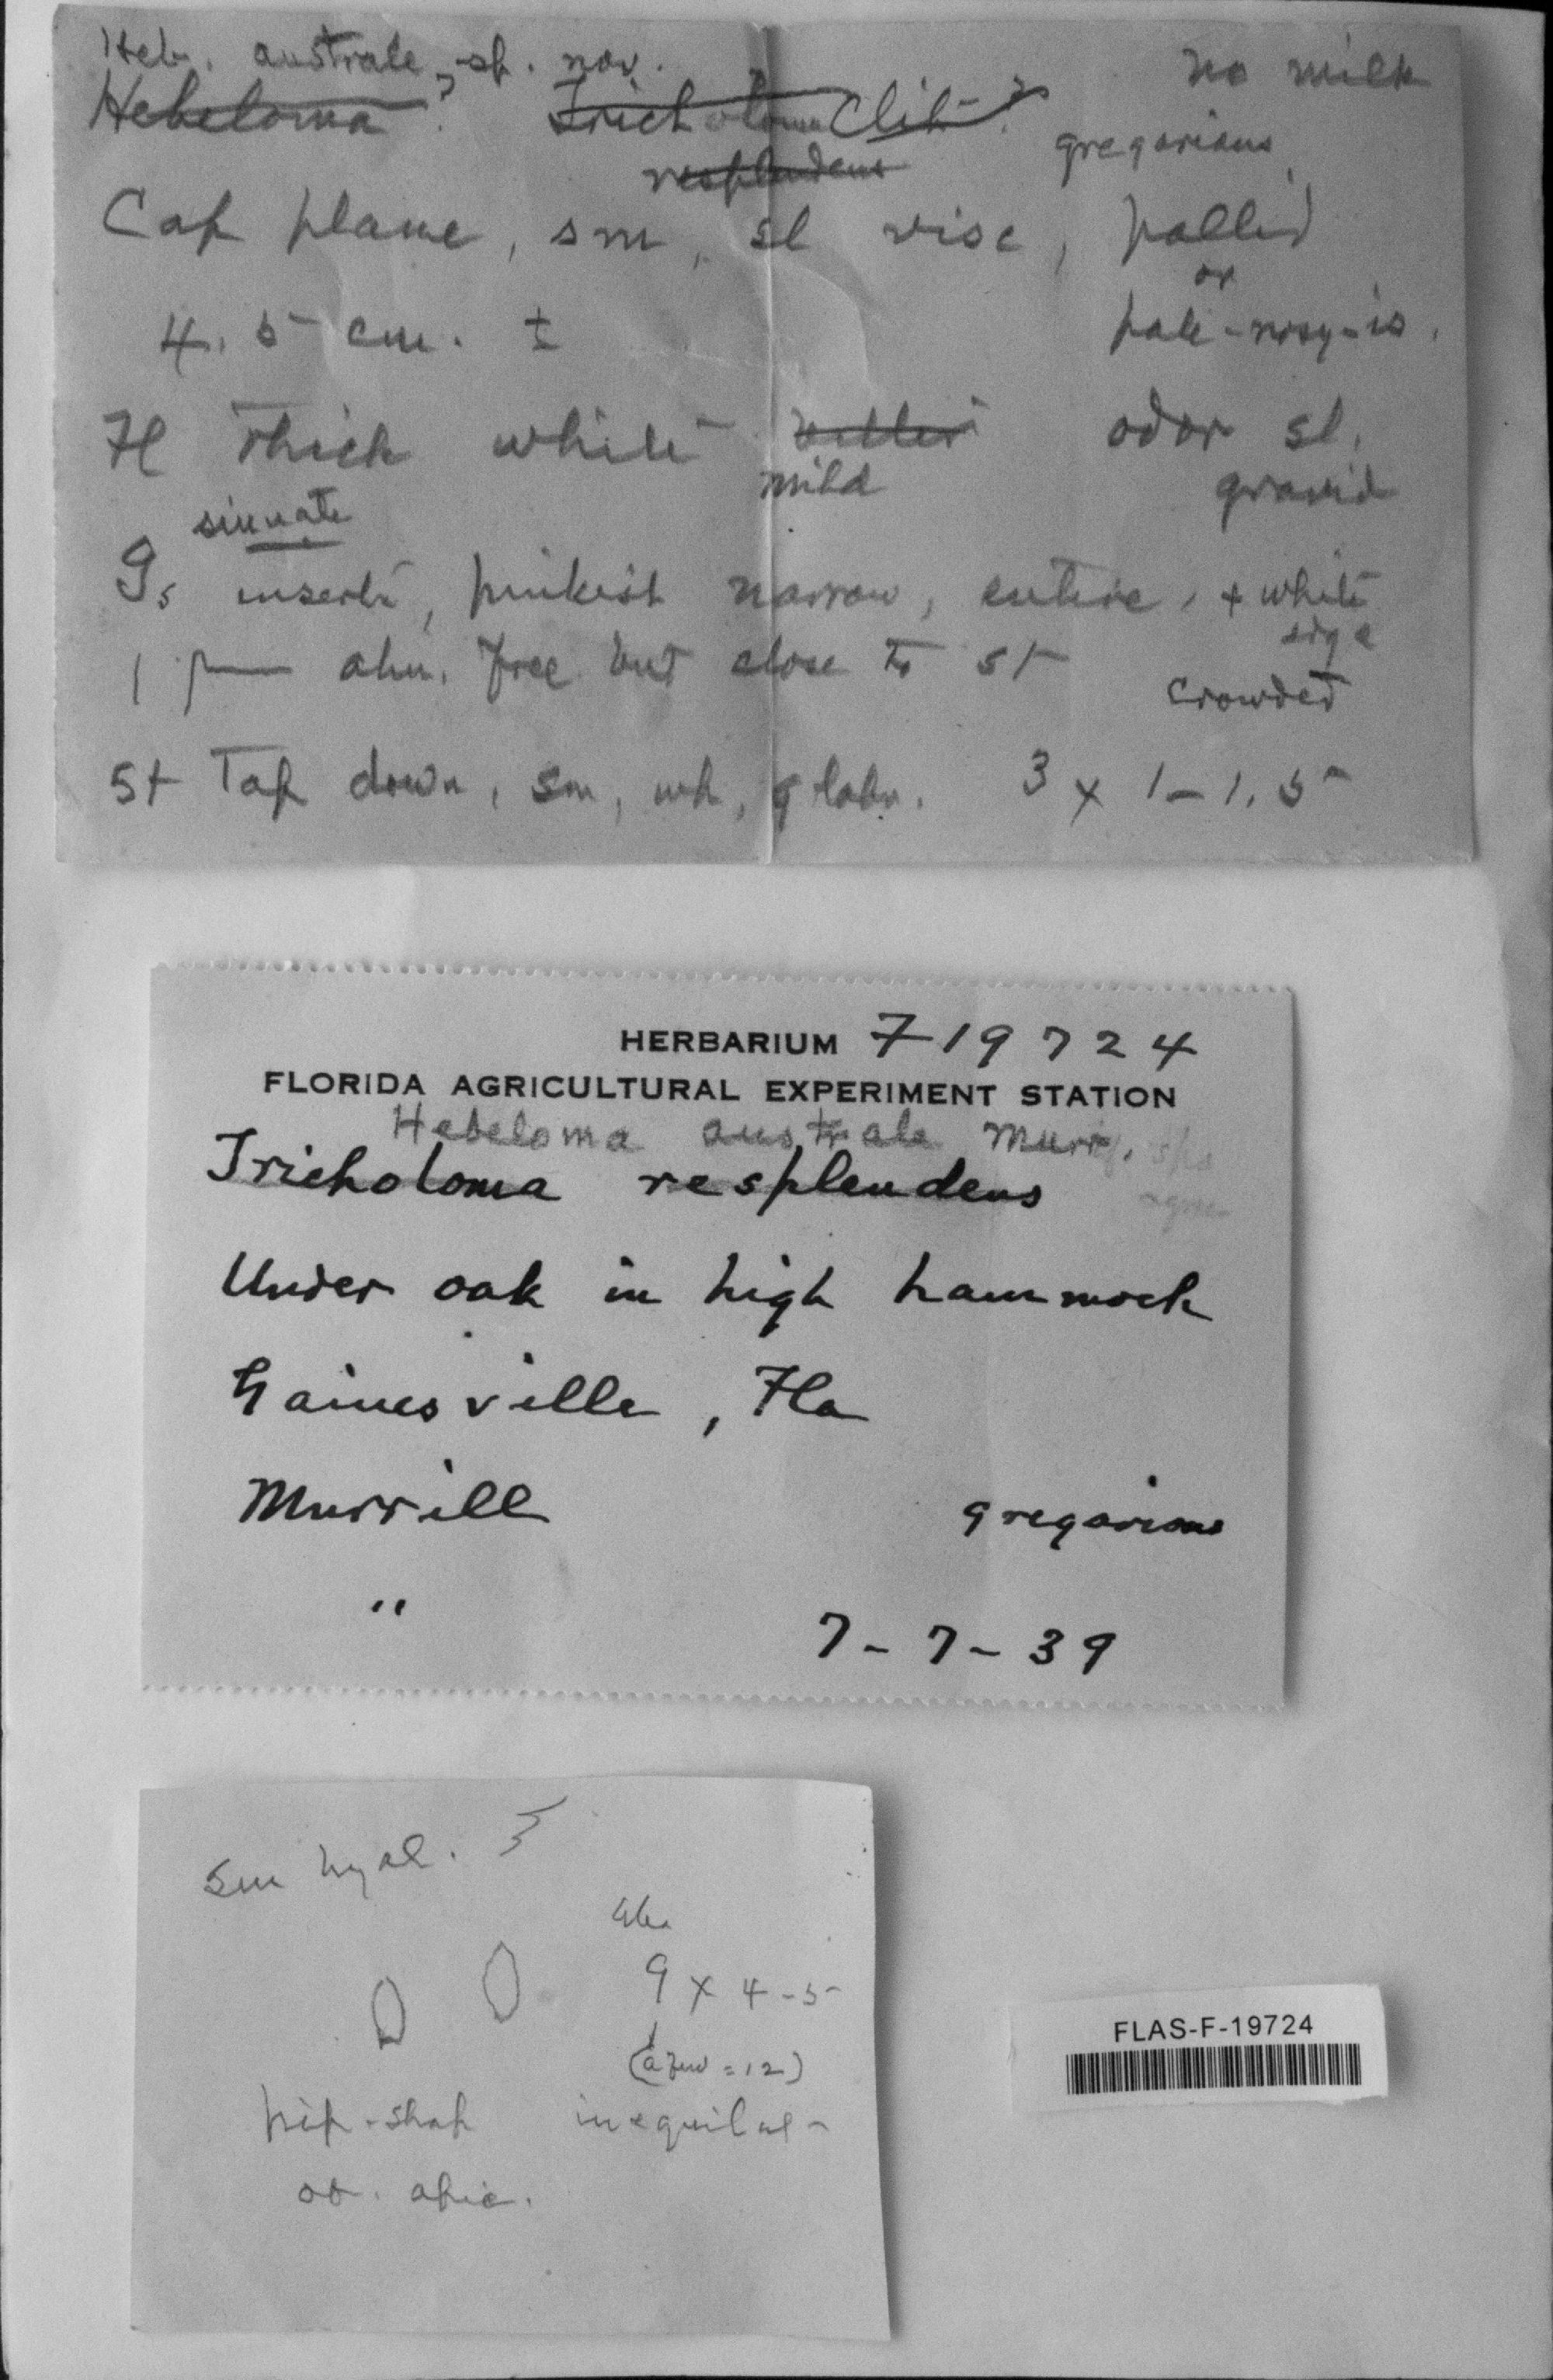 Heb. australe, sp. nov. no milk
Hebeloma? Tricholoma Clit?
resplendens gregarious
Cap plane, sm, sl visc, pallid
or
4.5 cm. ± pale-rosy-is.
Fl thick white bitter odor sl.
mild
sinuate
Gs inserti, pinkish narrow, entire, + white
edge
free but close to st
crowded
St tap down, sm, wh, glabr. 3 x 1-1.5
HERBARIUM F 19724
FLORIDA AGRICULTURAL EXPERIMENT STATION
Hebeloma australe Murr.
Tricholoma resplendens
Under oak in high hammock
Gainesville, Fla
Murrill gregarious
" 7-7-39
Sm hyal.
9 x 4-5
(a few = 12)
pip-shap inequilat
ob. apic.
FLAS-F-19724